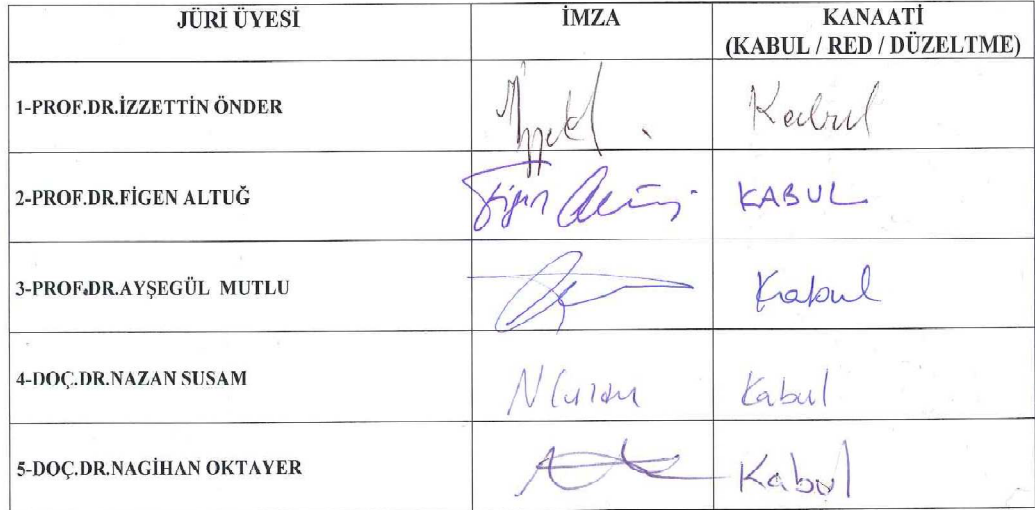 JÜRİ ÜYESİ İMZA KANAATİ
(KABUL / RED / DÜZELTME)
1-PROF.DR.İZZETTİN ÖNDER Kabul
2-PROF.DR.FİGEN ALTUĞ Figen KABUL
3-PROF.DR.AYŞEGÜL MUTLU Kabul
4-DOÇ.DR.NAZAN SUSAM Kabul
5-DOÇ.DR.NAGİHAN OKTAYER Kabul